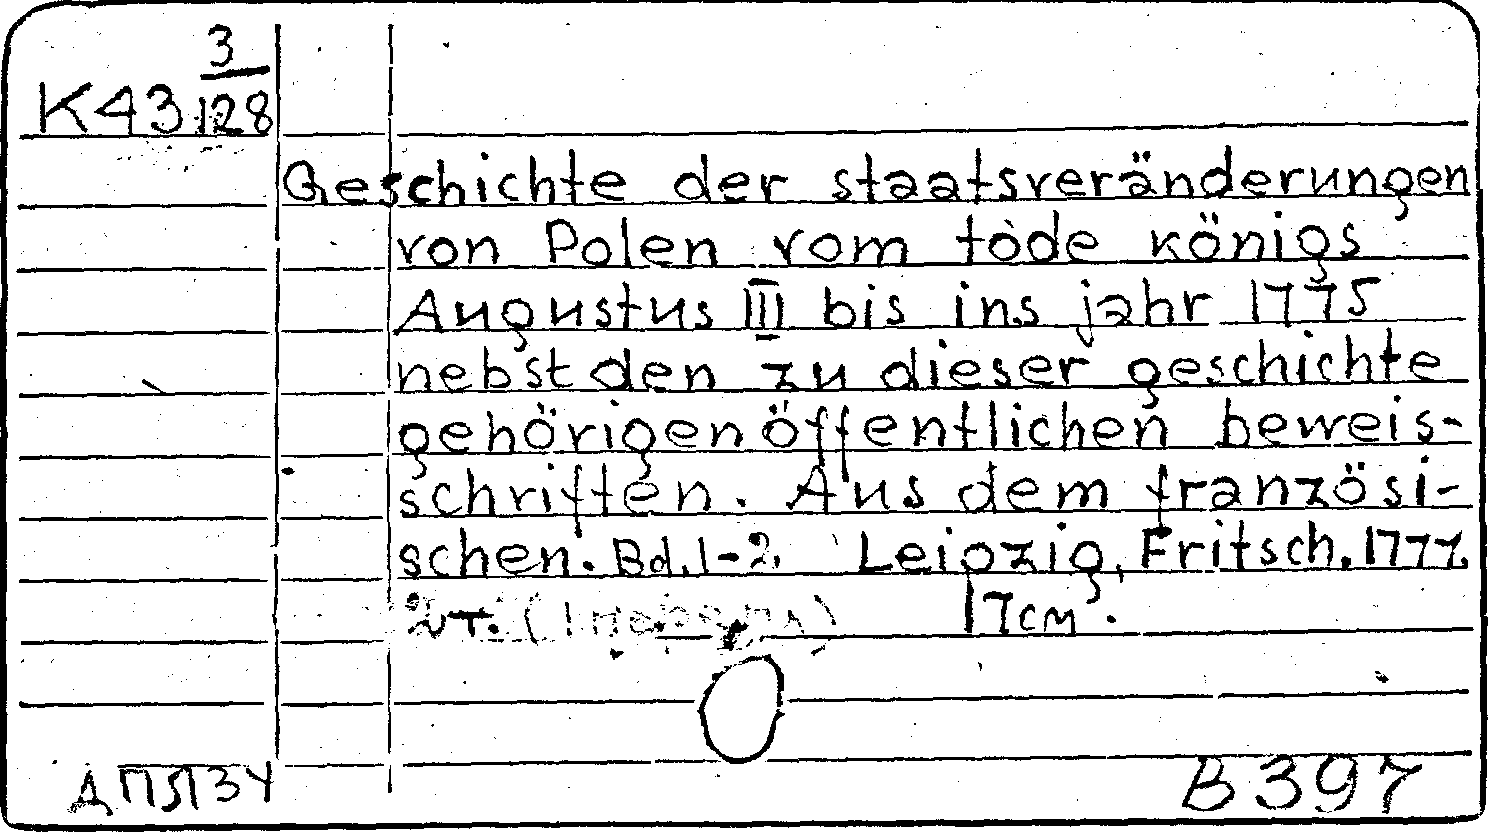 3
K43 128
Geschichte der staatsveränderungen
von Polen vom tode königs
Augustus III bis ins jahr 1775
nebst den zu dieser geschichte
gehörigen öffentlichen beweis-
schriften. Aus dem französi-
schen. Bd. 1-2. Leipzig, Fritsch. 1777.
2 т. 17 см.
В 397